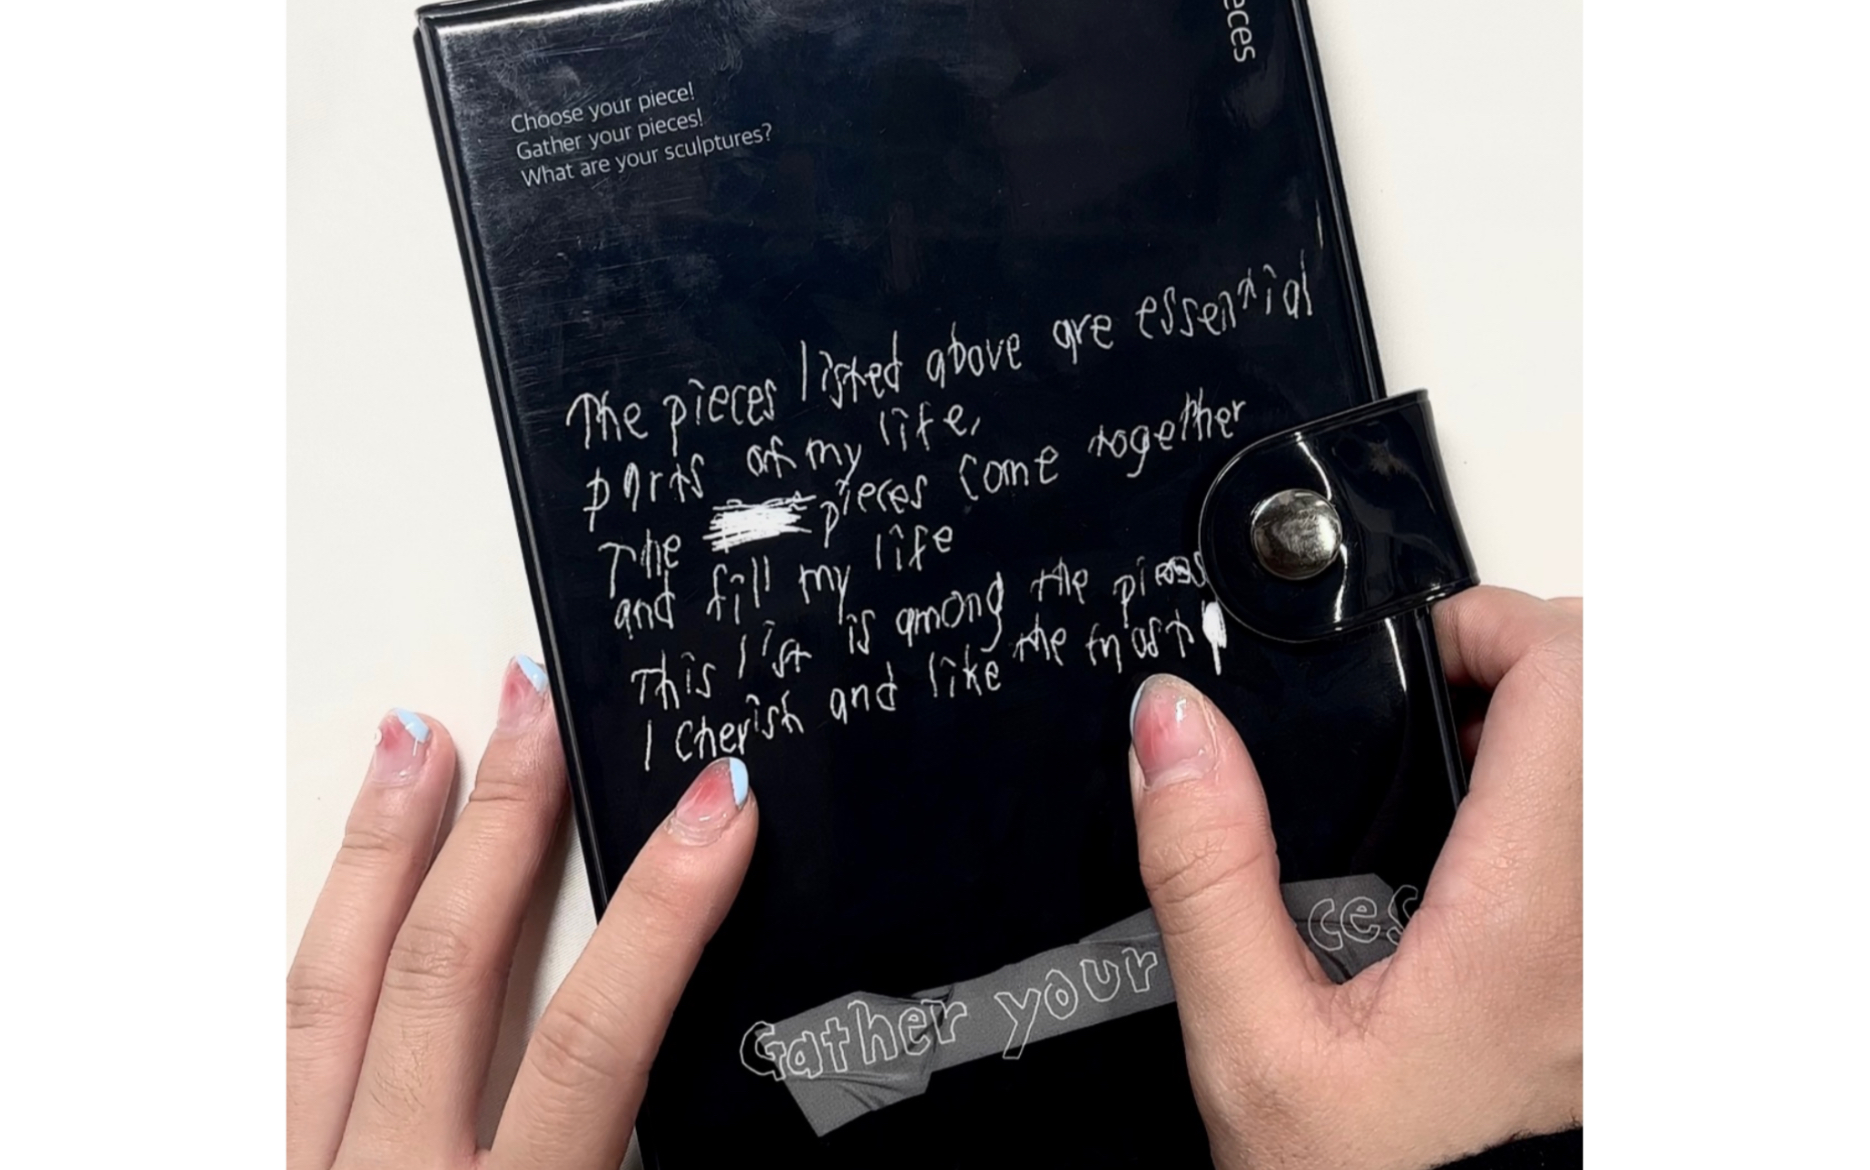 eces
Choose your piece!
Gather your pieces!
What are your sculptures?
The pieces listed above are essential
parts of my life,
The pieces come together
and fill my life
This list is among the pieces
I cherish and like the most
Gather your ces